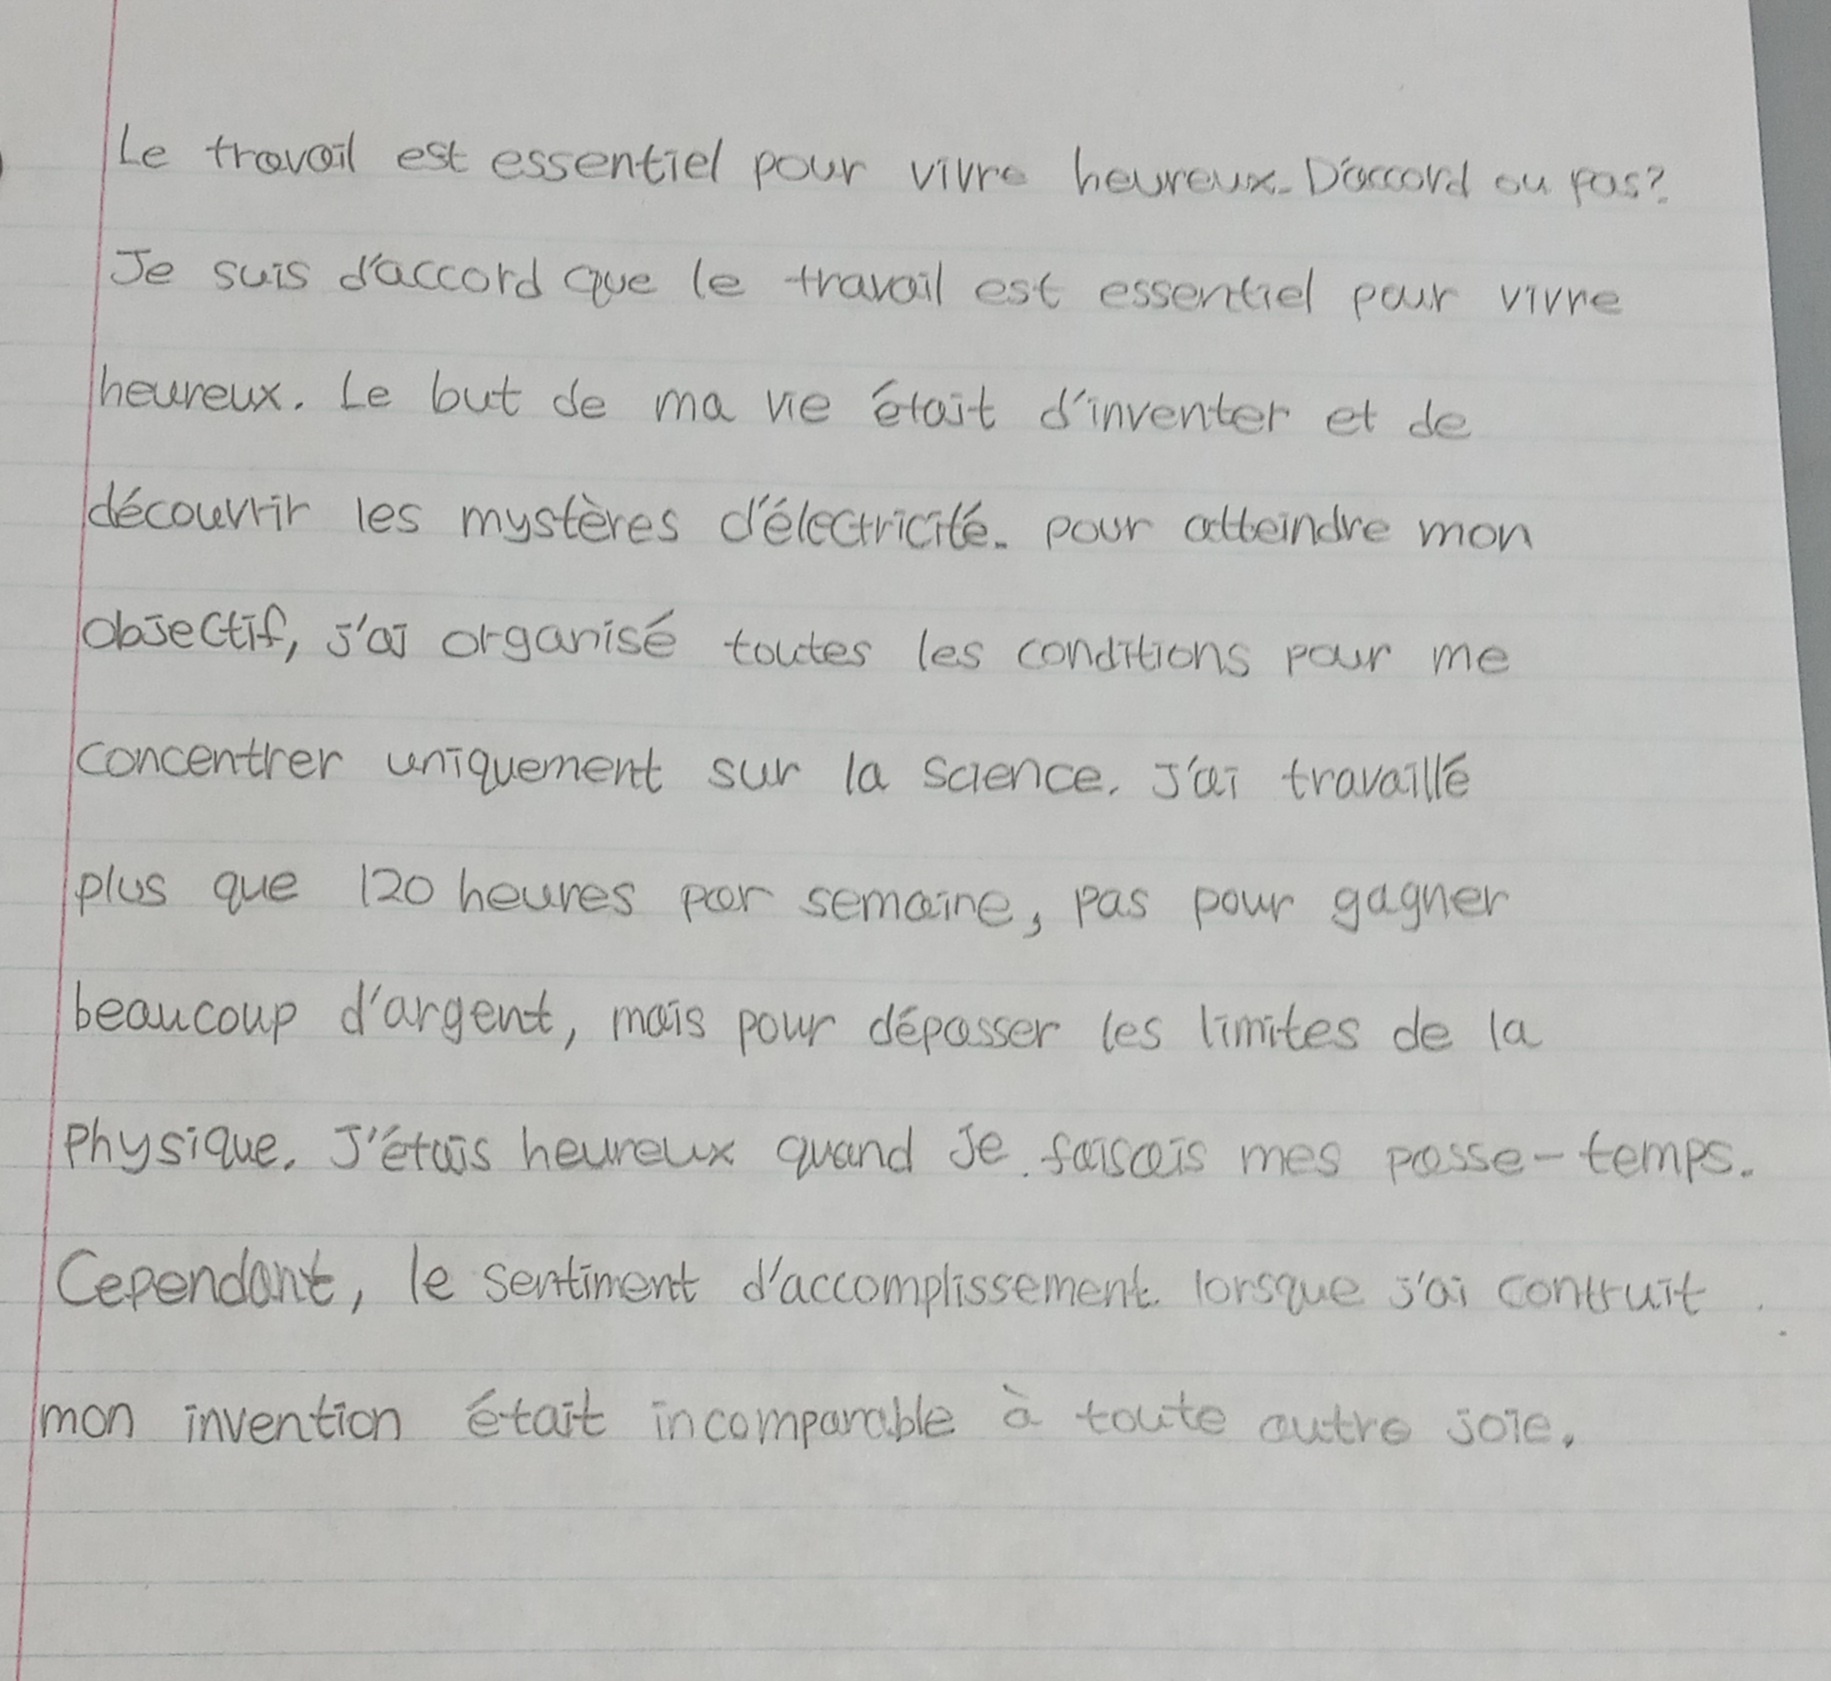 Le travail est essentiel pour vivre heureux. D'accord ou pas?
Je suis d'accord que le travail est essentiel pour vivre
heureux. Le but de ma vie était d'inventer et de
découvrir les mystères d'électricité. pour atteindre mon
objectif, j'ai organisé toutes les conditions pour me
concentrer uniquement sur la science. J'ai travaillé
plus que 120 heures par semaine, pas pour gagner
beaucoup d'argent, mais pour dépasser les limites de la
physique. J'étais heureux quand je faisais mes passe-temps.
Cependant, le sentiment d'accomplissement lorsque j'ai contruit
mon invention était incomparable à toute autre joie.